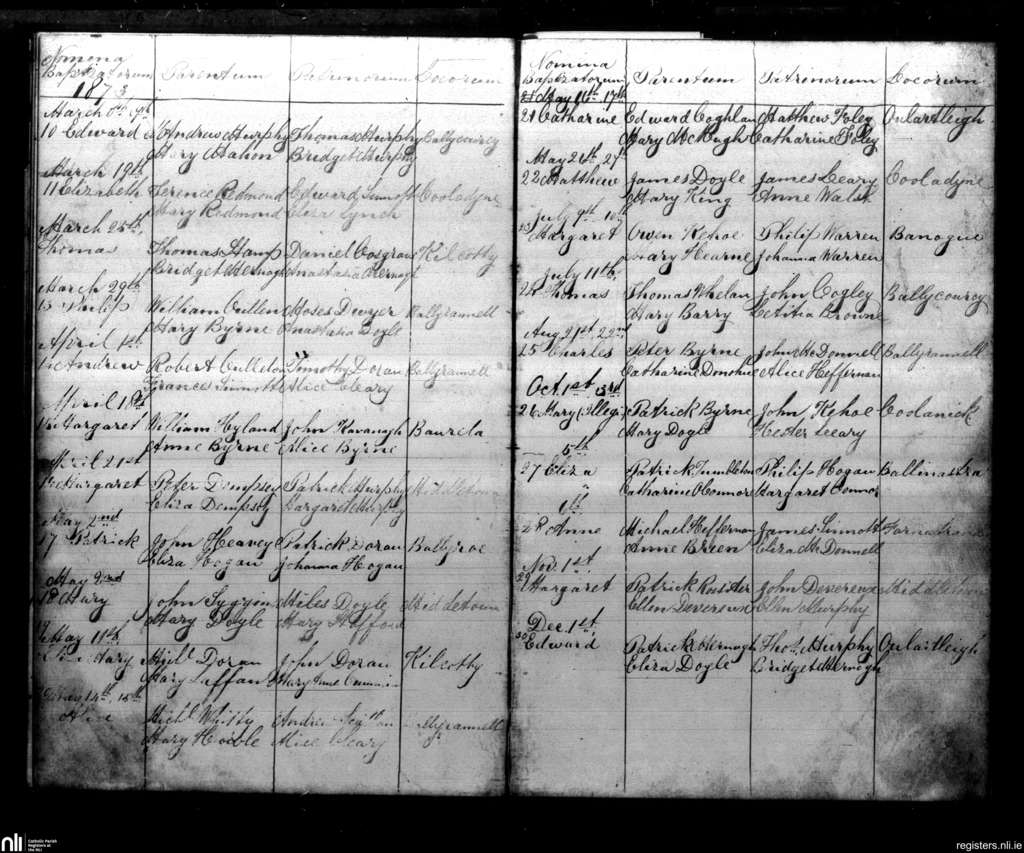 Nomina
Baptizatorum Parentum Patrinorum Locorum
1873
March 9th
10 Edward Andrew Murphy Thomas Murphy Ballycourcy
Mary Mahon Bridget Murphy
March 19th
11 Elizabeth Terence Redmond Edward Sinnott Cooladyne
Mary Redmond Eliza Lynch
March 25th
Thomas Thomas Stamp Daniel Cosgrave Kilcotty
Bridget Kernagh Anastatia
March 29th
13 Philip William Cullen Moses Dwyer Ballyrannell
Mary Byrne Anastatia Doyle
April 1st
14 Andrew Robert Culleton Timothy Doran Ballyrannell
Frances Sinnott Alice Cleary
April 18th
Margaret William Hyland John Kavanagh Baurela
Anne Byrne Alice Byrne
April 21st
Margaret Peter Dempsey Patrick Murphy Middletown
Eliza Dempsey Margaret Murphy
May 2nd
17 Patrick John Heavey Patrick Doran Ballyroe
Eliza Hogan Johanna Hogan
May 2nd
18 Mary John Miles Doyle Middletown
Mary Doyle Mary Stafford
May 11th
Mary Michl Doran John Doran Kilcotty
Mary Laffan Mary Anne
May 14th, 15th
Alice Michl Whitty Andrew
Mary Alice Cleary
Nomina
Baptizatorum Parentum Patrinorum Locorum
May 16th 17th
21 Catharine Edward Coghlan Matthew Foley Oulartleigh
Mary McHugh Catharine Foley
May 26th 27th
22 Matthew James Doyle James Leary Cooladyne
Mary King Anne Walsh
July 9th 10th
Margaret Owen Kehoe Philip Warren Banogue
Mary Hearne Johanna Warren
July 11th
24 Thomas Thomas Whelan John Cogley Ballycourcy
Mary Barry Letitia Browne
Aug 21st, 22nd
25 Charles Peter Byrne John McDonnell Ballyrannell
Catharine Donohue Alice Heffernan
Oct. 1st 3rd
26 Mary (Illeg) Patrick Byrne John Kehoe Coolanick
Mary Doyle Hester Leary
" 5th
27 Eliza Patrick Tumbleton Philip Hogan Ballinastra
Catharine O'Connor Margaret Connor
"
28 Anne Michael Heffernan James Sinnott
Anne Breen Eliza McDonnell
Nov. 1st
29 Margaret Patrick Rossiter John Devereux Middletown
Ellen Devereux Ellen Murphy
Dec. 1st
30 Edward Patrick Kernagh Thos. Murphy Oulartleigh
Eliza Doyle Bridget Kernagh
nli
Catholic Parish
Registers at
the NLI
registers.nli.ie